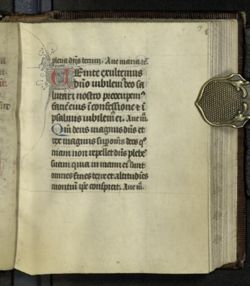 plena dñs tecum. Aue maria
Uenite exultemus
dño iubilem deo sa
lutari nostro preoccupem
faciē eius ī confessione et ī
psalmis iubilem ei. Aue m̄
Qm̄ deus magnus dñs et
rex magnus sup om̄s deos q̄
niam non repellet dñs plebē
suam quia in manu ei sunt
omnes fines terre et altitudīes
montiū ip̄e conspicit. Aue m̄